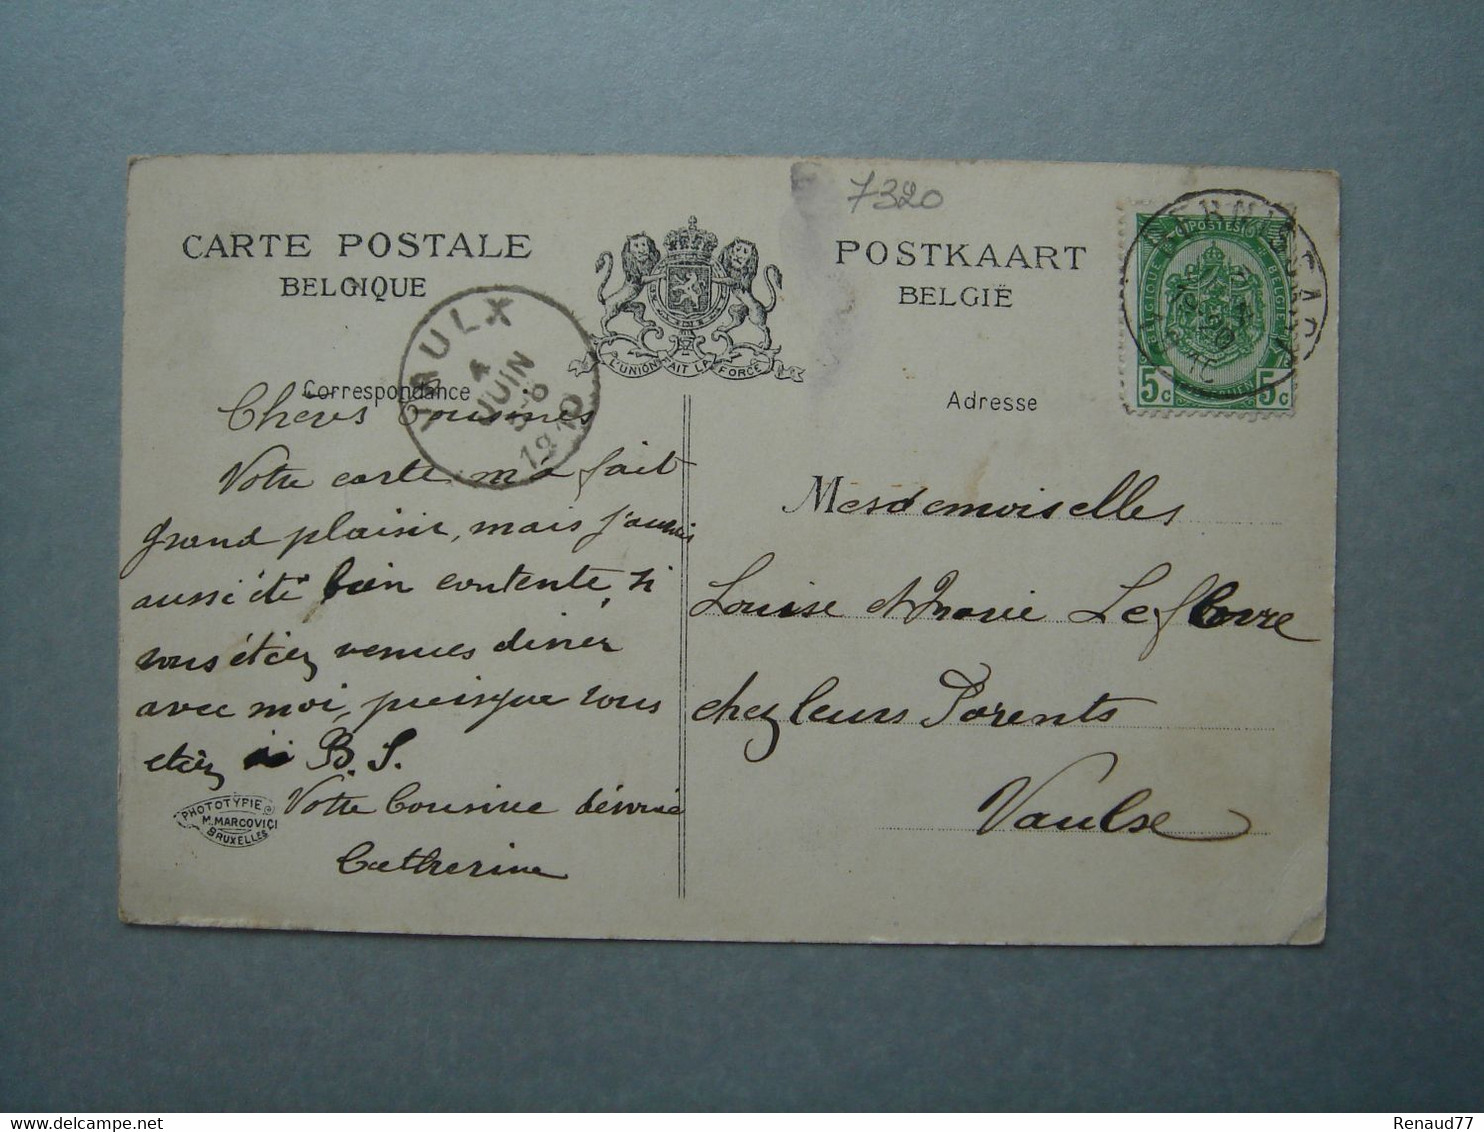 7320
CARTE POSTALE
BELGIQUE
POSTKAART
BELGIË
L'UNION FAIT LA FORCE
VAULX
4
JUIN
5-6
1910
BERNISSART
POSTES
BELGIQUE
BELGIE
5c
5c
Correspondance
Adresse
Chères Cousines
Votre carte m'a fait
grand plaisir, mais j'aurais
aussi été bien contente, si
vous étiez venues diner
avec moi, puisque vous
étiez à B. S.
Votre Cousine dévouée
Catherine
PHOTOTYPIE
M. MARCOVICI
BRUXELLES
Mesdemoiselles
Louise et Marie Lefebvre
chez leurs Parents
Vaulx
Renaud77